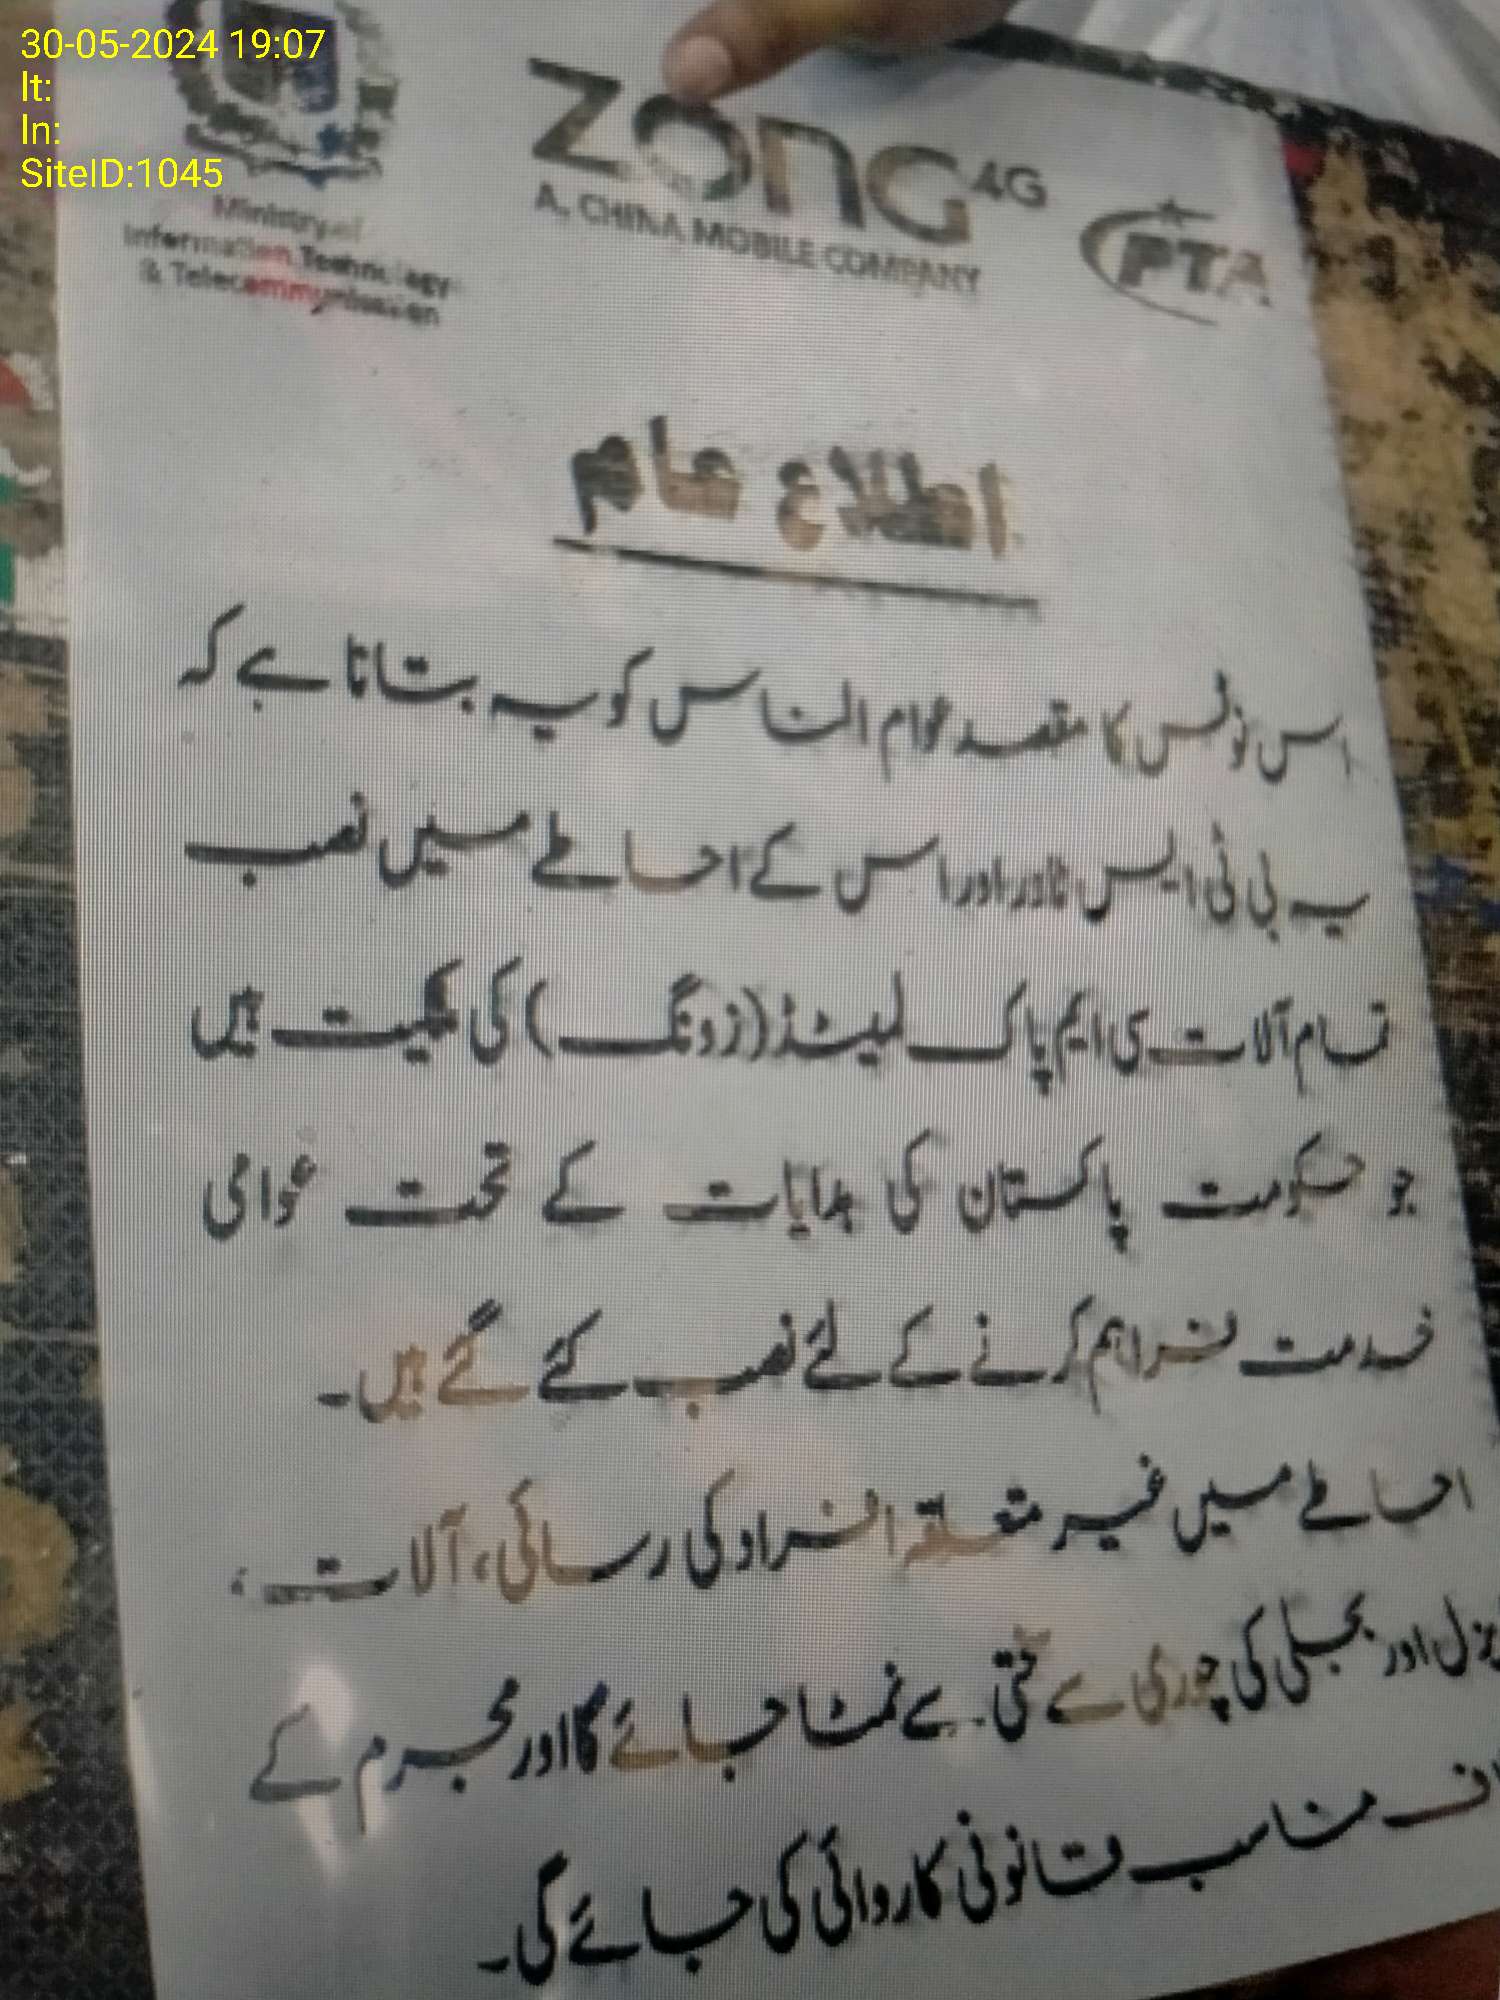 30-05-2024 19:07
lt:
ln:
SiteID:1045
zong 4G
A CHINA MOBILE COMPANY
Ministry of
Information Technology
& Telecommunication
PTA
اطلاع عام
اس نوٹس کا مقصد عوام الناس کو یہ بتانا ہے کہ
یہ بی ٹی ایس ٹاور اور اس کے احاطے میں نصب
تمام آلات سی ایم پاک لمیٹڈ (زونگ) کی ملکیت ہیں
جو حکومت پاکستان کی ہدایات کے تحت عوامی
خدمت فراہم کرنے کے لئے نصب کئے گئے ہیں۔
احاطے میں غیر متعلقہ افراد کی رسائی، آلات،
اور بجلی کی چوری سے سختی سے نمٹا جائے گا اور مجرم کے
مناسب قانونی کاروائی کی جائے گی۔